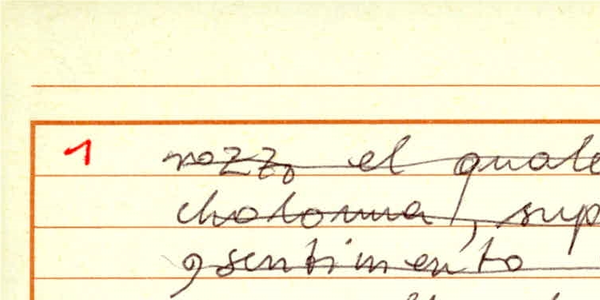 1 rozzo el quale
cholonna, sup
9sentimento